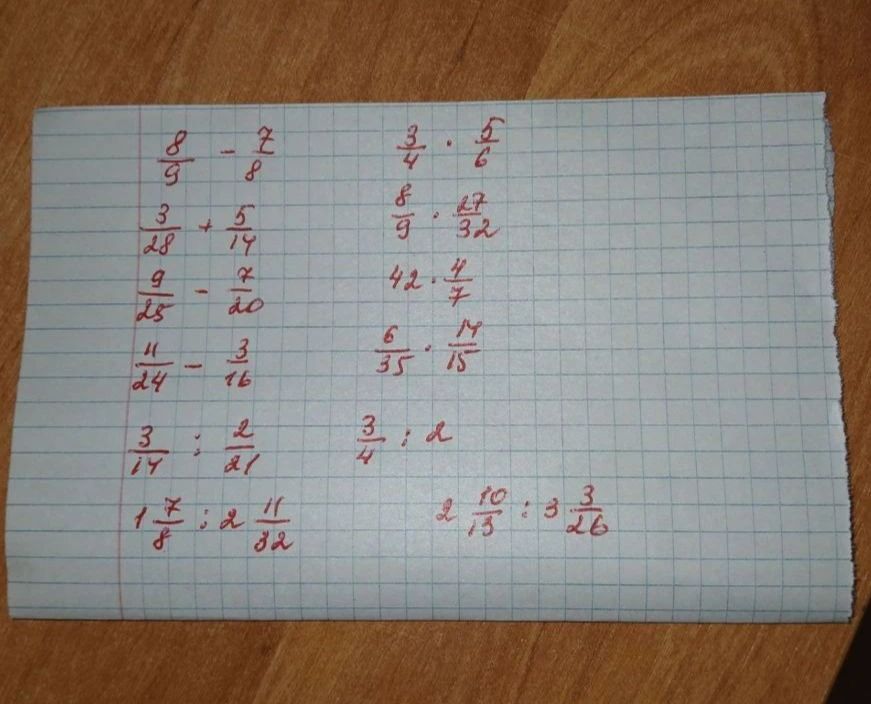 8/9 - 7/8
3/4 · 5/6
3/28 + 5/14
8/9 · 27/32
9/25 - 7/20
42 · 4/7
11/24 - 3/16
6/35 · 14/15
3/14 : 2/21
3/4 : 2
1 7/8 : 2 11/32
2 10/13 : 3 3/26